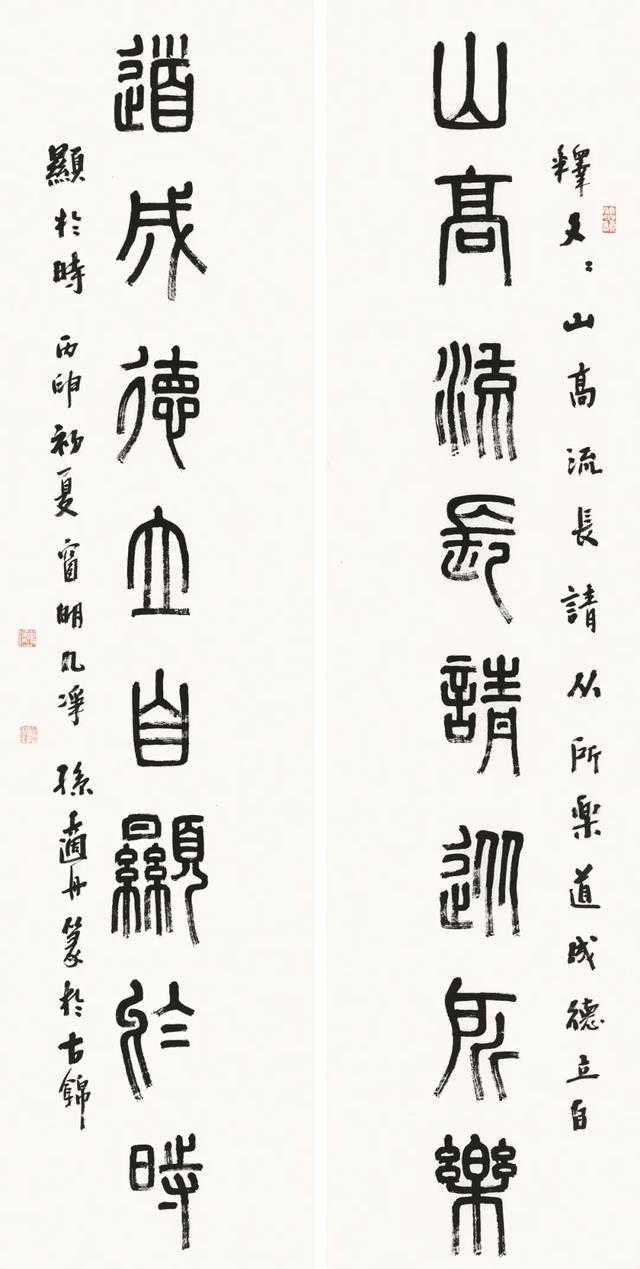 釋文：山高流長請从所楽道成德立自
山高流長請從所樂
道成德立自顯於時
顯於時 丙申初夏 窗明几淨 孫適 篆於古錦